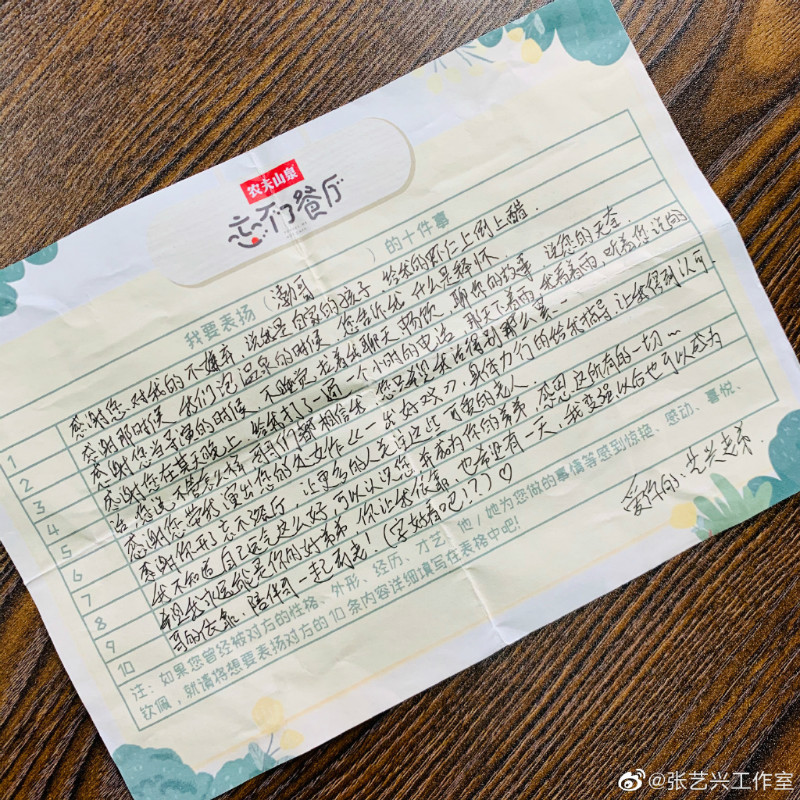 农夫山泉
忘不了餐厅
我要表扬(渤哥)的十件事
1 感谢您对我的不嫌弃,说我是自家的孩子 给我的虾仁上倒上醋.
2 感谢那时候 我们泡温泉的时候 您告诉我 什么是释怀
3 感谢您当导演的时候,不睡觉 拉着我聊天 畅饮 聊你的故事 说您的天奎
4 感谢您在某天晚上,给我打了一通一个小时的电话,那天下着雨,我看着雨,听着您说的
5 话,您说 不管怎么样 哥们都相信我 您只希望我活得别那么累…
6 感谢您带我演出您的处女作《一出好戏》,身体力行的给我指导,让我得到认可.
7 感谢你开了忘不了餐厅,让更多的人关点这些可爱的老人.
8 我不知道自己运气这么好,可以认识您 并成为你的弟弟,感恩这所有的一切~
9 希望我永远都能是你的好弟弟 你让我依靠,也希望有一天,我变强以后也可以成为
10 哥的依靠.陪伴哥一起到老!(字好看吧!?)♡
爱你的:艺兴老弟.
注:如果您曾经被对方的性格、外形、经历、才艺、他/她为您做的事情等感到惊艳、感动、喜悦、
钦佩,就请将想要表扬对方的10条内容详细填写在表格中吧!
@张艺兴工作室